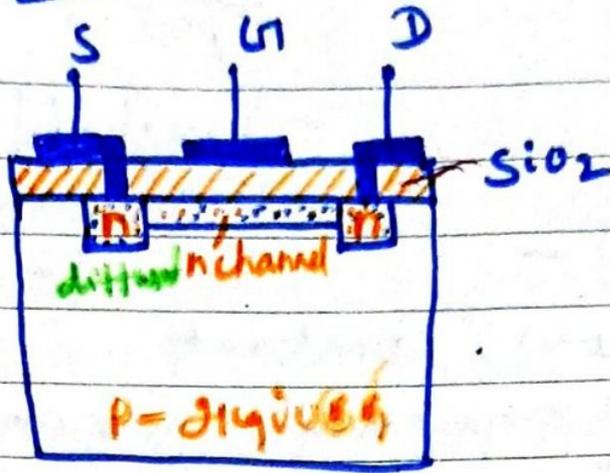 S G D
SiO2
n n
diffused n channel
P=